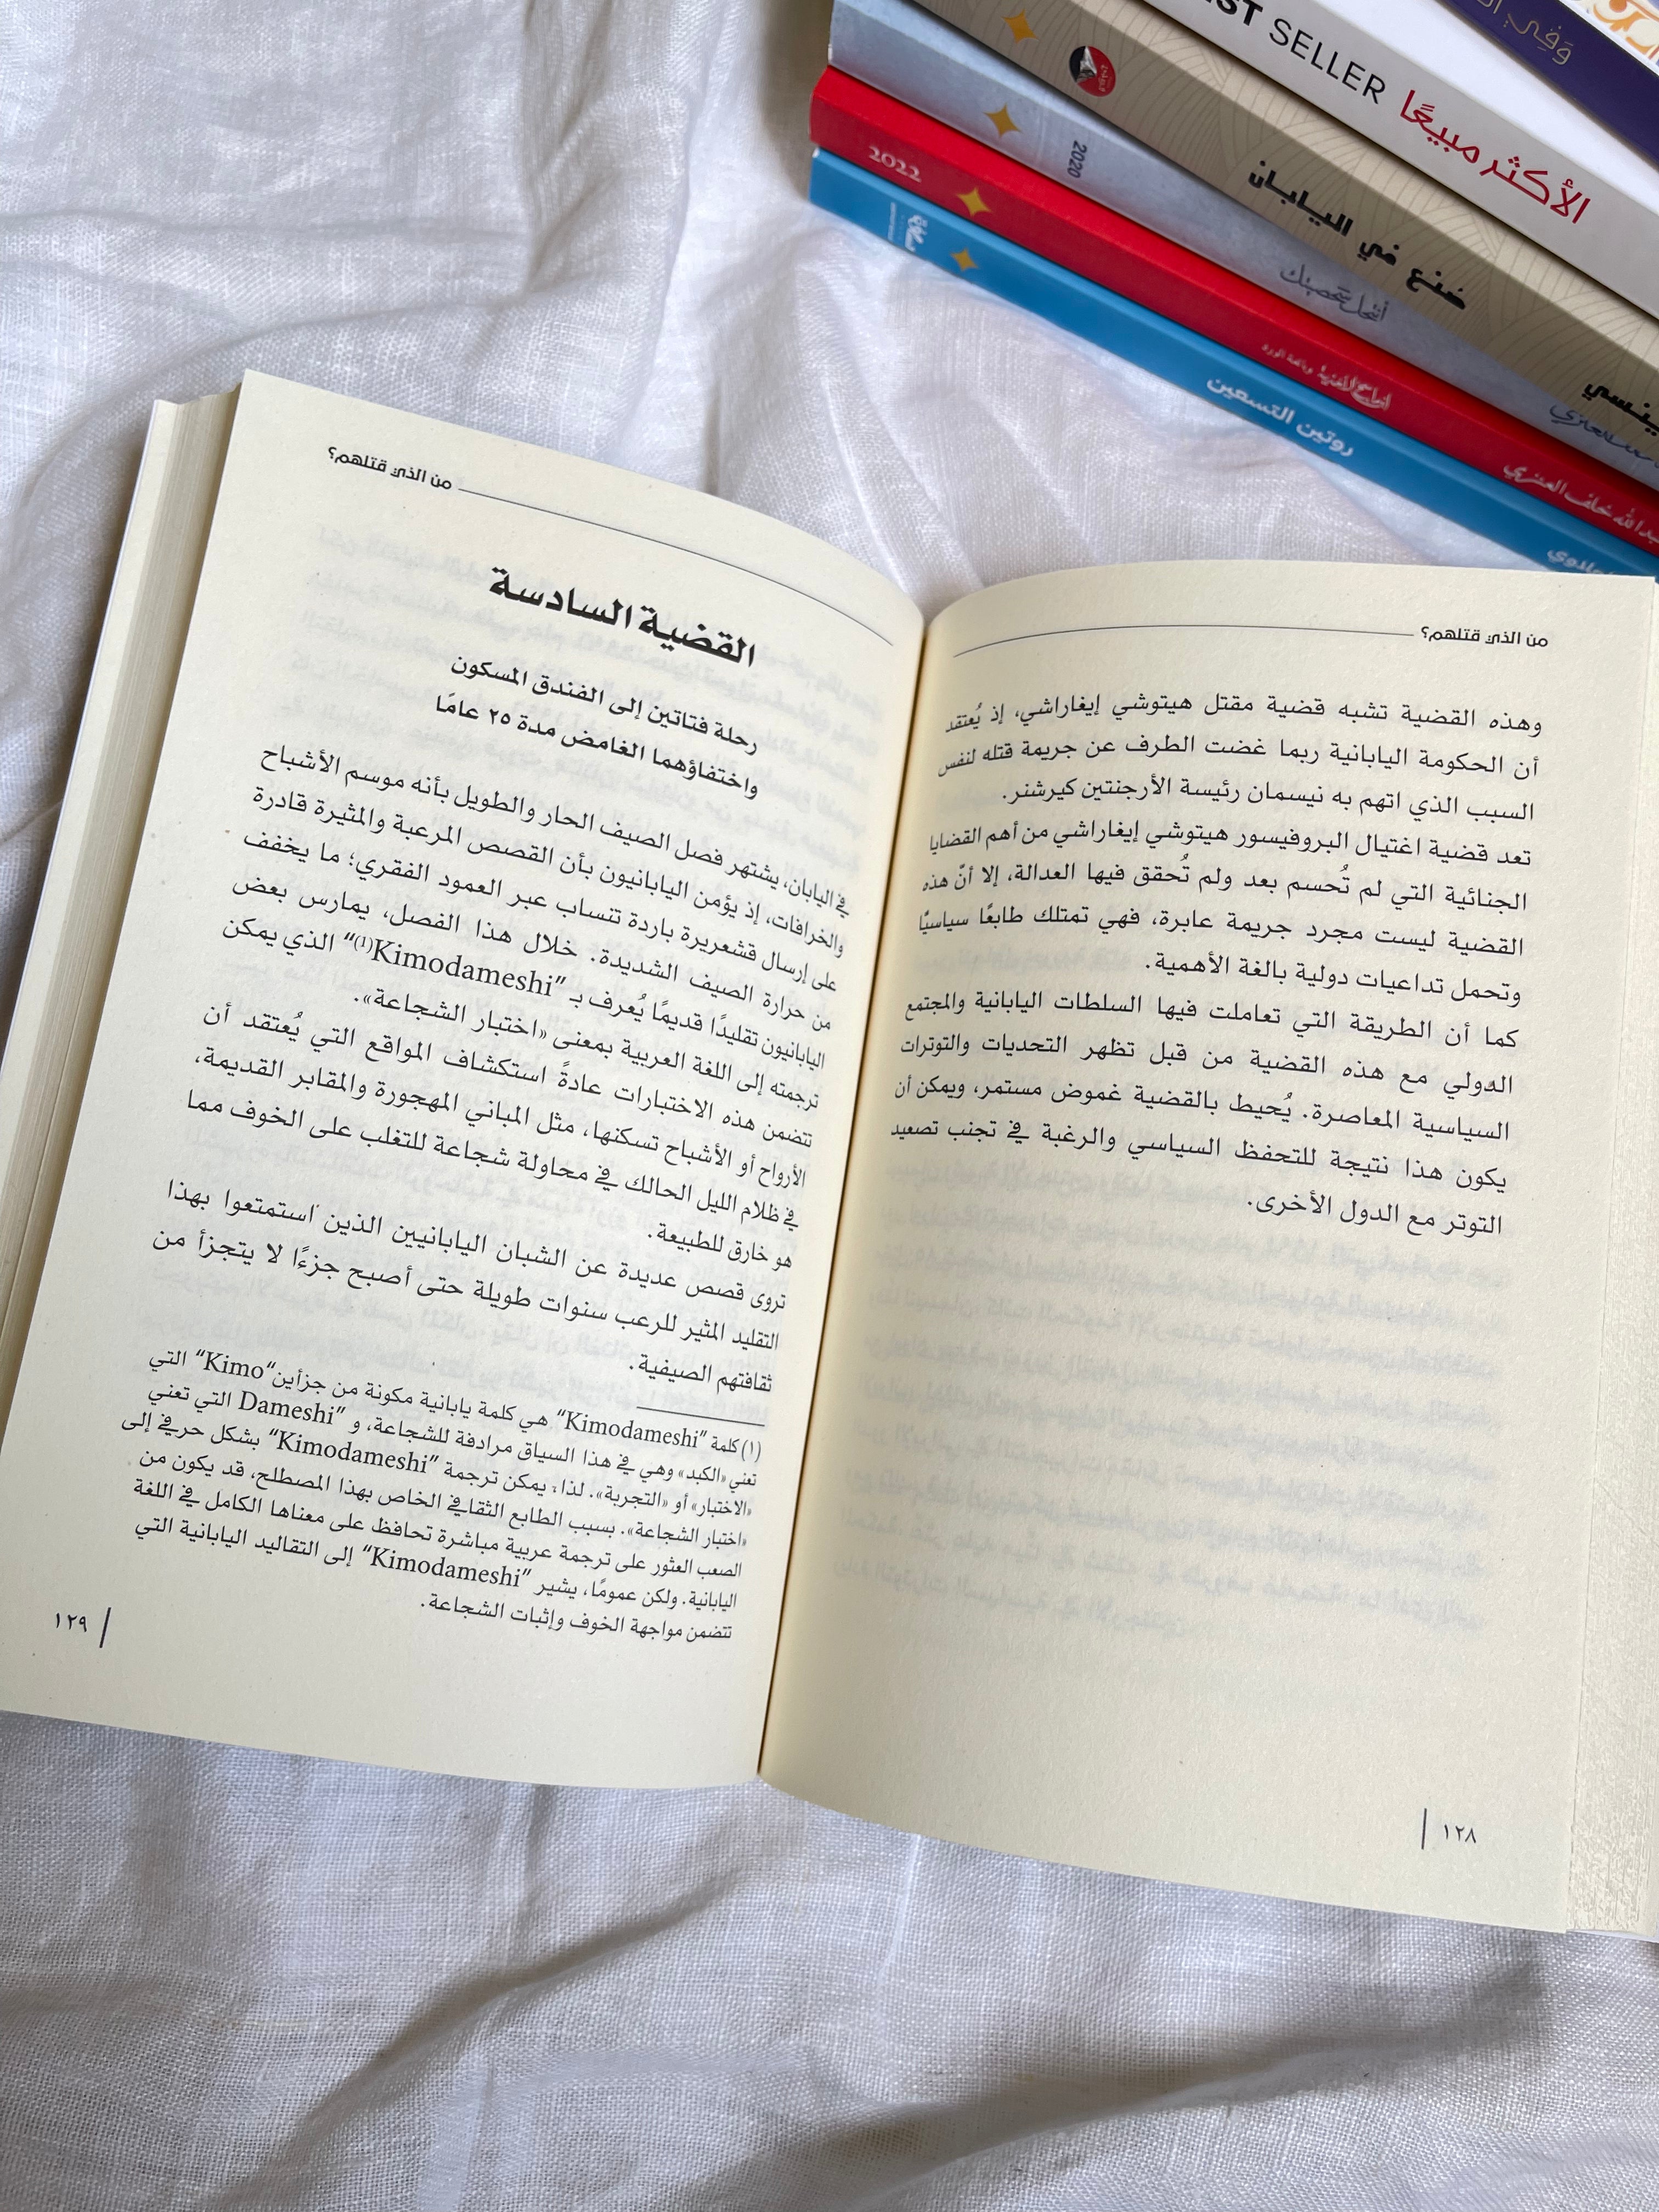 وَفِي
ST SELLER الأكثر مبيعًا
صُنع في اليابان
2020
2022
روتين التسعين
من الذي قتلهم؟
وهذه القضية تشبه قضية مقتل هيتوشي إيغاراشي، إذ يُعتقد
أن الحكومة اليابانية ربما غضت الطرف عن جريمة قتله لنفس
السبب الذي اتهم به نيسمان رئيسة الأرجنتين كيرشنر.
تعد قضية اغتيال البروفيسور هيتوشي إيغاراشي من أهم القضايا
الجنائية التي لم تُحسم بعد ولم تُحقق فيها العدالة، إلا أنّ هذه
القضية ليست مجرد جريمة عابرة، فهي تمتلك طابعًا سياسيًا
وتحمل تداعيات دولية بالغة الأهمية.
كما أن الطريقة التي تعاملت فيها السلطات اليابانية والمجتمع
الدولي مع هذه القضية من قبل تظهر التحديات والتوترات
السياسية المعاصرة. يُحيط بالقضية غموض مستمر، ويمكن أن
يكون هذا نتيجة للتحفظ السياسي والرغبة في تجنب تصعيد
التوتر مع الدول الأخرى.
١٢٨
من الذي قتلهم؟
القضية السادسة
رحلة فتاتين إلى الفندق المسكون
واختفاؤهما الغامض مدة ٢٥ عامًا
في اليابان، يشتهر فصل الصيف الحار والطويل بأنه موسم الأشباح
والخرافات، إذ يؤمن اليابانيون بأن القصص المرعبة والمثيرة قادرة
على إرسال قشعريرة باردة تنساب عبر العمود الفقري؛ ما يخفف
من حرارة الصيف الشديدة. خلال هذا الفصل، يمارس بعض
اليابانيون تقليدًا قديمًا يُعرف بـ "Kimodameshi(١)" الذي يمكن
ترجمته إلى اللغة العربية بمعنى «اختبار الشجاعة».
تتضمن هذه الاختبارات عادةً استكشاف المواقع التي يُعتقد أن
الأرواح أو الأشباح تسكنها، مثل المباني المهجورة والمقابر القديمة،
في ظلام الليل الحالك في محاولة شجاعة للتغلب على الخوف مما
هو خارق للطبيعة.
تروى قصص عديدة عن الشبان اليابانيين الذين استمتعوا بهذا
التقليد المثير للرعب سنوات طويلة حتى أصبح جزءًا لا يتجزأ من
ثقافتهم الصيفية.
(١) كلمة "Kimodameshi" هي كلمة يابانية مكونة من جزأين "Kimo" التي
تعني «الكبد» وهي في هذا السياق مرادفة للشجاعة، و "Dameshi" التي تعني
«الاختبار» أو «التجربة». لذا، يمكن ترجمة "Kimodameshi" بشكل حرفي إلى
«اختبار الشجاعة». بسبب الطابع الثقافي الخاص بهذا المصطلح، قد يكون من
الصعب العثور على ترجمة عربية مباشرة تحافظ على معناها الكامل في اللغة
اليابانية. ولكن عمومًا، يشير "Kimodameshi" إلى التقاليد اليابانية التي
تتضمن مواجهة الخوف وإثبات الشجاعة.
١٢٩